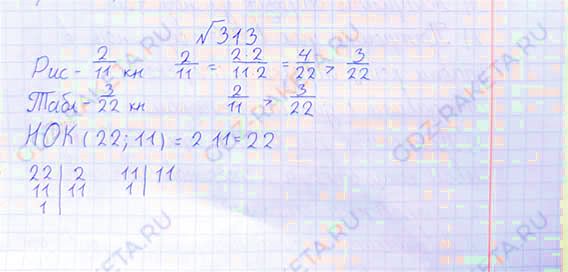 √313
Рис - 2/11 кн 2/11 = 2·2/11·2 = 4/22 > 3/22
Табл - 3/22 кн 2/11 > 3/22
НОК (22; 11) = 2 11 = 22
22 | 2 11 | 11
11 | 11 1 |
1 |
GDZ-RAKETA.RU